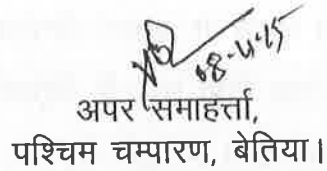 08-4-15
अपर समाहर्त्ता,
पश्चिम चम्पारण, बेतिया।